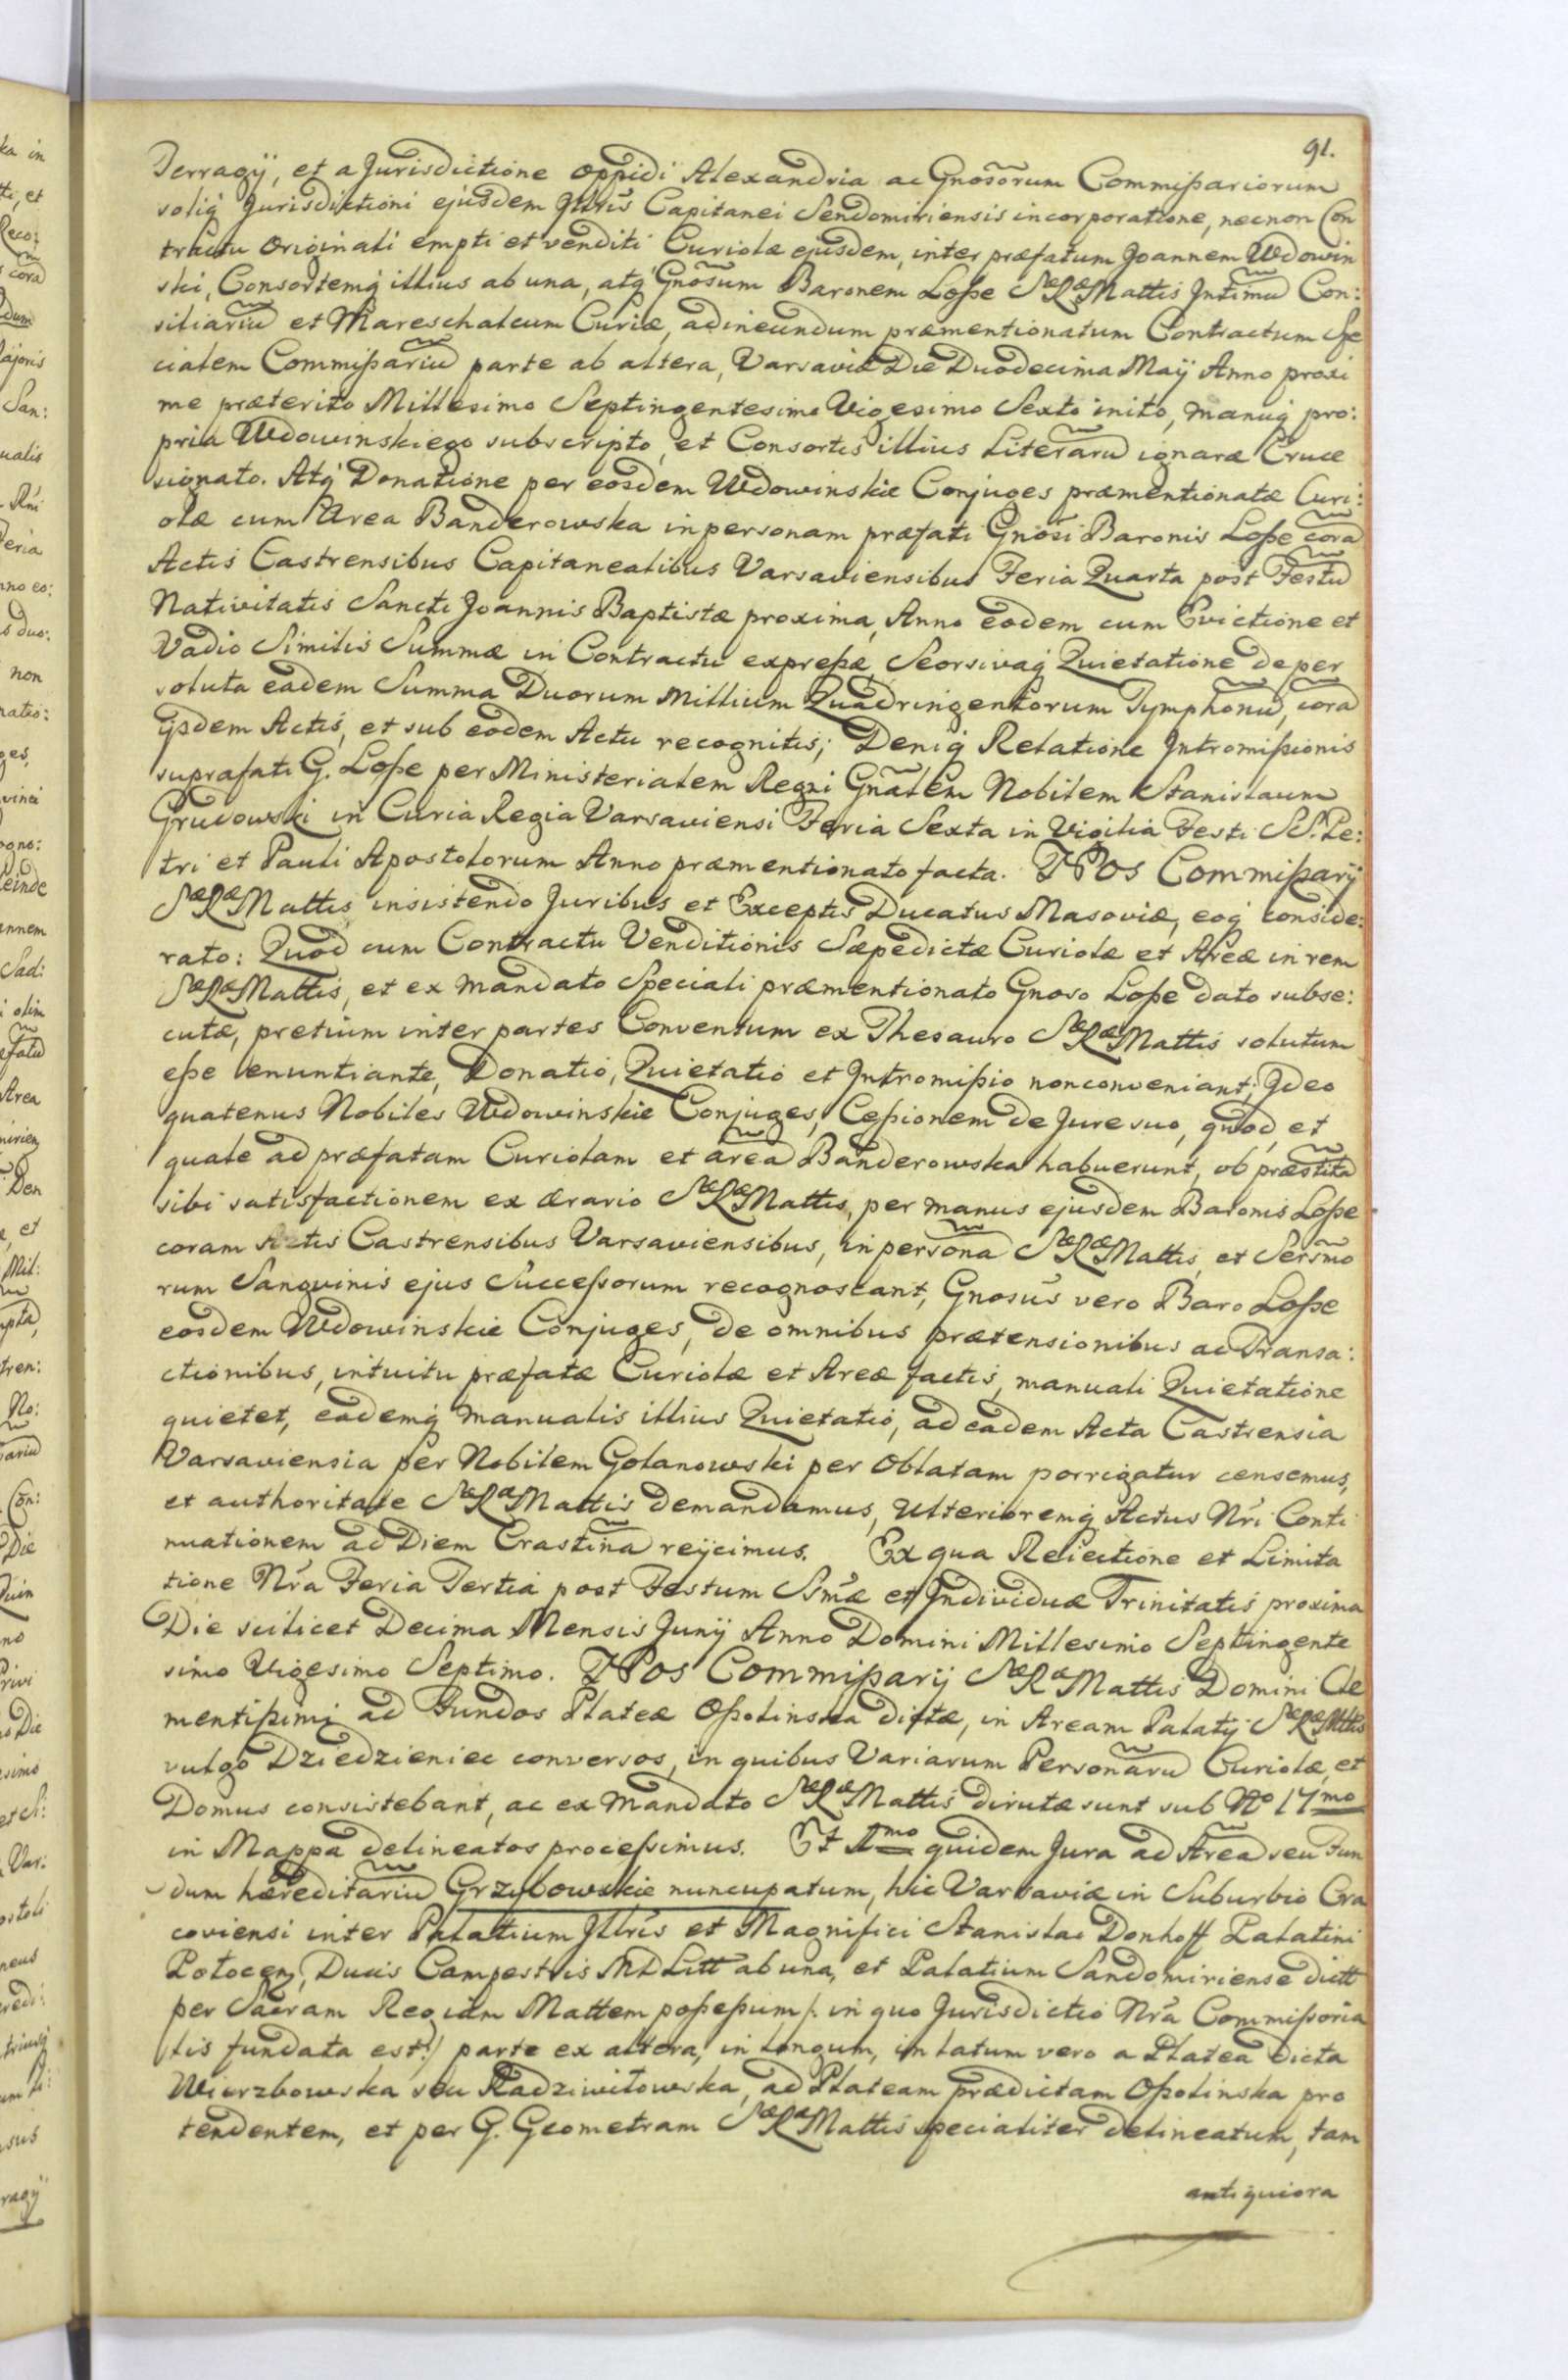 91.
Terragÿ, et a Jurisdictione Oppidi Alexandria ac Gnosorum Commißariorum
solią Jurisdictioni ejusdem Jllris Capitanei Sendomiriensis incorporatione, necnon Con
tractu Originali empti et venditi Curiolæ ejusdem, inter præfatum Joannem Wdowin
ski, Consortemq́ illius ab una, atq́ Gnosum Baronem Loße SæRæMattis Jntimũ Con:
siliariũ et Mareschalcum Curiæ, ad ineundum præmentionatum Contractum Spe
cialem Commißariũ parte ab altera, Varsaviæ Die Duodecima Maÿ Anno proxi
me præterito Millesimo Septingentesimo Vigesimo Sexto inito, manuq́ pro:
pria Wdowinskiego subscripto, et Consortis illius Literarũ ignaræ Cruce
signato. Atq́ Donatione per eosdem Wdowinskie Conjuges præmentionatæ Curi:
olæ cum Area Banderowska in personam præfati Gnosi Baronis Loße corã
Actis Castrensibus Capitanealibus Varsaviensibus Feria Quarta post Festũ
Nativitatis Sancti Joannis Baptistæ proxima, Anno eodem cum Evictione et
Vadio Similis Summæ in Contractu expreßæ, Seorsivaq́ Quietatione de per
soluta eadem Summa Duorum Millium Quadringentorum Tymphonũ, corã
ijsdem Actis, et sub eodem Actu recognitis; Deniq́ Relatione Jntromißionis
suprafati G. Loße per Ministerialem Regni Gnãlem Nobilem Stanislaum
Grudowski in Curia Regia Varsaviensi Feria Sexta in Vigilia Festi SS. Pe:
tri et Pauli Apostolorum Anno præmentionato facta. NOS Commißarÿ
SæRæMattis, insistendo Juribus et Exceptis Ducatus Masoviæ, eoq́ conside:
rato: Quod cum Contractu Venditionis Sæpedictæ Curiolæ et Areæ in rem
SæRæMattis, et ex mandato Speciali præmentionato Gnoso Loße dato subse:
cutæ, pretium inter partes Conventum ex Thesauro SæRæMattis solutum
eße enuntiante, Donatio, Quietatio et Jntromißio non conveniant; Jdeo
quatenus Nobiles Wdowinskie Conjuges, Ceßionem de Jure suo, quod, et
quale ad præfatam Curiolam et areã Banderowska habuerunt, ob præstitã
sibi satisfactionem ex ærario SæRæMattis, per manus ejusdem Baronis Loße
coram Actis Castrensibus Varsaviensibus, in personã SæRæMattis, et Sersmo
rum Sanguinis ejus Succeßorum recognoscant, Gnosus vero Baro Loße
eosdem Wdowinskie Conjuges, de omnibus prætensionibus ac Transa:
ctionibus, intuitu præfatæ Curiolæ et Areæ factis, manuali Quietatione
quietet, eademq́ manualis illius Quietatio, ad eadem Acta Castrensia
Varsaviensia per Nobilem Golanowski per Oblatam porrigatur censemus,
et authoritate SæRæMattis demandamus, Ulterioremq́ Actus Nri Conti
nuationem ad Diem Crastinã reÿcimus. Ex qua Reiectione et Limita
tione Nra Feria Tertia post Festum Ssmæ et Jndividuæ Trinitatis proxima
Die scilicet Decima Mensis Junÿ Anno Domini Millesimo Septingente
simo Vigesimo Septimo. NOS Commißarÿ SæRæMattis Domini Cle
mentißimi ad Fundos Plateæ Oßolinska dictæ, in Aream Palatÿ SæRæMttis
vulgo Dziedzieniec conversos, in quibus Variarum Personarũ Curiolæ, et
Domus consistebant, ac ex Mandato SæRæMattis dirutæ sunt sub No 17mo
in Mappa delineatos proceßimus. Et 1mo quidem Jura ad Areã seu Fun
dum hæreditariũ Grzybowskie nuncupatum, hic Varsaviæ in Suburbio Cra
coviensi inter Palatium Jllris et Magnifici Stanislai Donhoff Palatini
Polocen, Ducis Campestris MDLitt ab una, et Palatium Sandomiriense dictt
per Sacram Regiam Mattem poßeßum /: in quo Jurisdictio Nra Commißoria
lis fundata est:/ parte ex altera, in longum, in latum vero a Platea dicta
Wierzbowska seu Radziwiłowska, ad Plateam prædictam Oßolinska pro
tendentem, et per G. Geometram SæRæMattis specialiter delineatum, tam
antiquiora